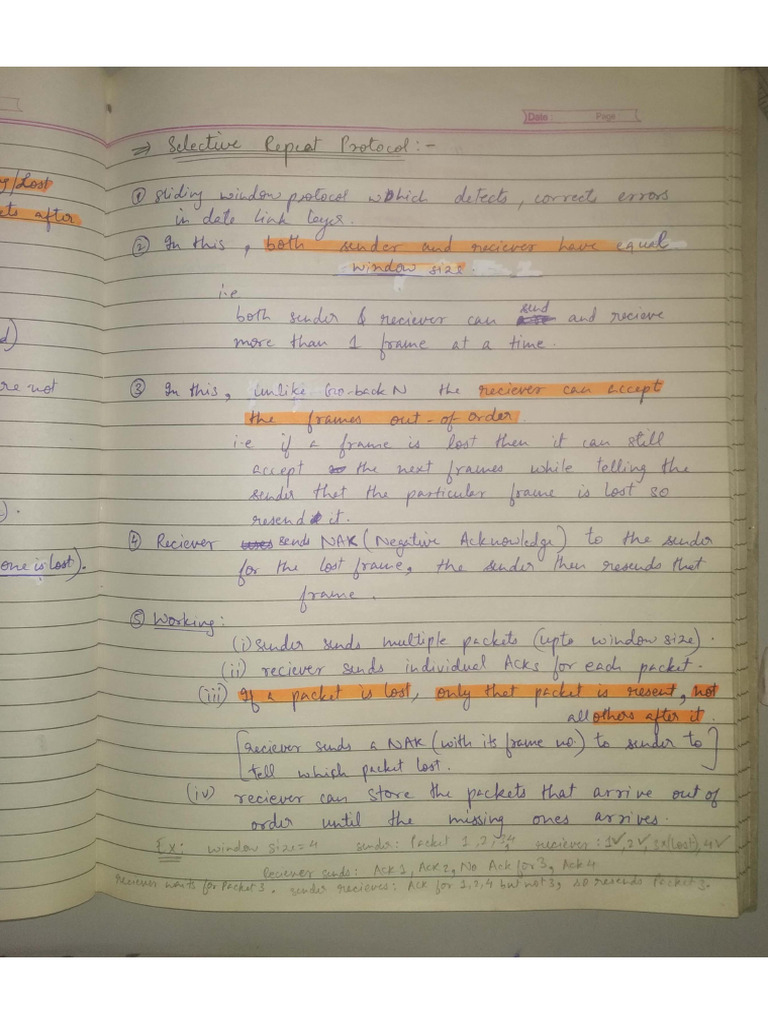 Date :          Page :
g/Lost
ets after
d)
re not
).
one is lost).
=> Selective Repeat Protocol :-
① Sliding window protocol which detects, corrects errors
in date link layer.
② In this, both sender and reciever have equal
window size.
i.e
both sender & reciever can send and recieve
more than 1 frame at a time.
③ In this, unlike Go-back N the reciever can accept
the frames out-of order.
i.e if a frame is lost then it can still
accept the next frames while telling the
sender that the particular frame is lost so
resend it.
④ Reciever sends NAK (Negative Acknowledge) to the sender
for the lost frame, the sender then resends that
frame.
⑤ Working:
(i) sender sends multiple packets (upto window size).
(ii) reciever sends individual Acks for each packet.
(iii) If a packet is lost, only that packet is resent, not
all others after it.
[reciever sends a NAK (with its frame no.) to sender to
tell which packet lost.]
(iv) reciever can store the packets that arrive out of
order until the missing ones arrives.
Ex: window size = 4 sender: Packet 1,2,3,4 reciever: 1✓,2✓,3x(lost),4✓
Reciever sends: Ack 1, Ack 2, No Ack for 3, Ack 4
Reciever waits for Packet 3. sender recieves: Ack for 1,2,4 but not 3, so resends Packet 3.